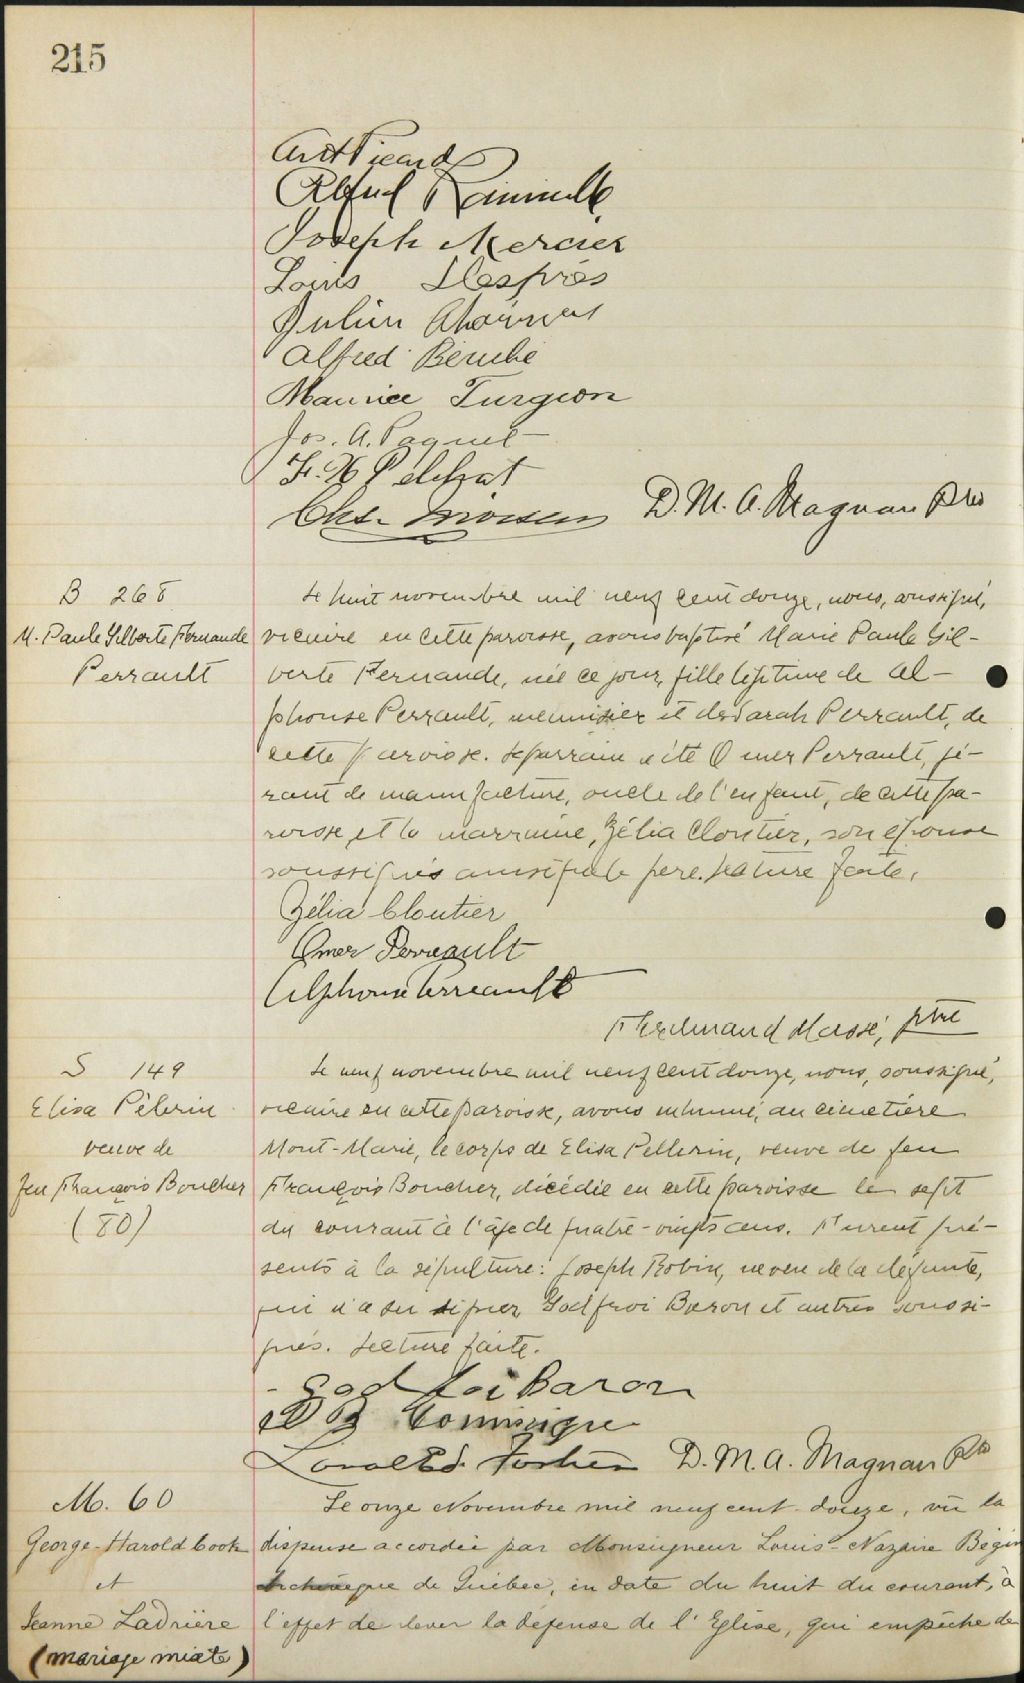 215
Art Picard
Alfred
Joseph Mercier
Louis Després
Julien
Alfred Bérubé
Maurice Turgeon
Jos. A. Paquet
F. X Pelchat
Chs.
D. M. A. Magnan Ptre
B 268
M. Paule Gilberte Fernande
Perrault
Le huit novembre mil neuf cent douze, nous, soussigné,
vicaire en cette paroisse, avons baptisé Marie Paule Gil-
berte Fernande, née ce jour, fille légitime de Al-
phonse Perrault, menuisier et de Sarah Perrault, de
cette paroisse. Le parrain a été Omer Perrault, gé-
rant de manufacture, oncle de l'enfant, de cette pa-
roisse, et la marraine, Zélia Cloutier, son épouse
soussignés ainsi que le père. Lecture faite.
Zélia Cloutier
Omer Perreault
Alphonse Perreault
Ferdinand Massé, ptre
S 149
Elisa Pélerin
veuve de
feu François Boucher
(80)
Le neuf novembre mil neuf cent douze, nous, soussigné,
vicaire en cette paroisse, avons inhumé, au cimetière
Mont-Marie, le corps de Elisa Pellerin, veuve de feu
François Boucher, décédée en cette paroisse le sept
du courant à l'âge de quatre-vingts ans. Furent pré-
sents à la sépulture: Joseph Robin, neveu de la défunte,
qui n'a su signer Godfroi Baron et autres soussi-
gnés. Lecture faite.
Godfroi Baron
D. M. A. Magnan Ptre
M. 60
George-Harold Cook
et
Jeanne Ladrière
(mariage mixte)
Le onze Novembre mil neuf cent douze, vu la
dispense accordée par Monseigneur Louis-Nazaire Bégin
Archevêque de Québec, en date du huit du courant, à
l'effet de lever la défense de l'Eglise, qui empêche de